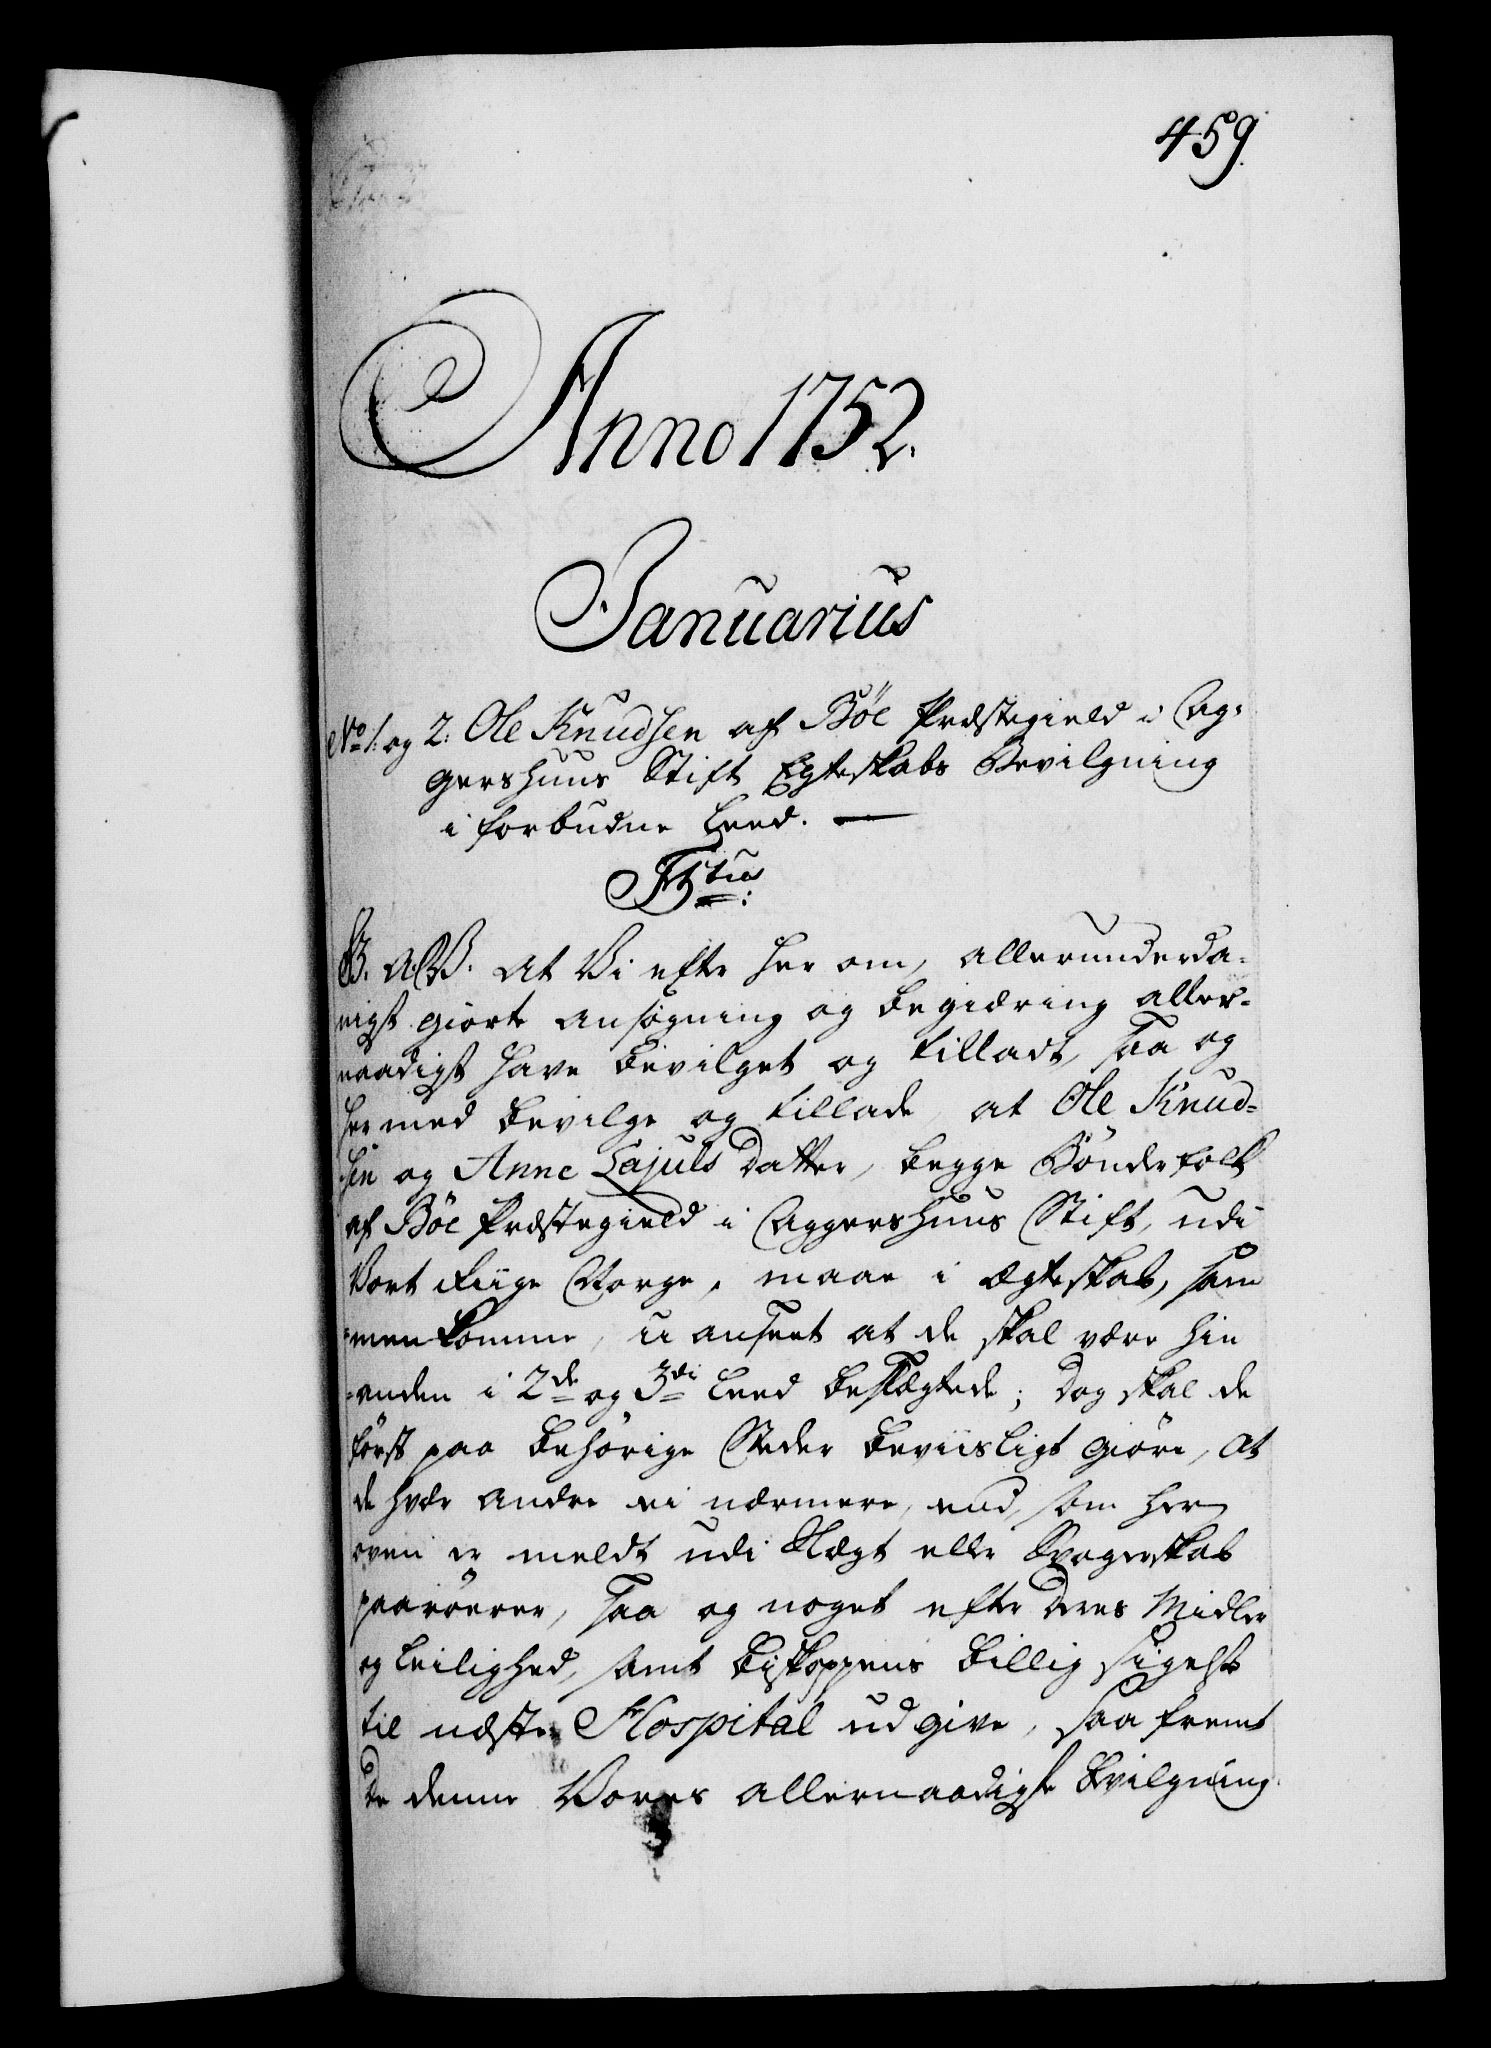 459.
Anno 1752.
Januarius
No 1: og 2: Ole Knudsen af Bøe Præstegield i Ag-
gershuus Stift Egteskabs Bevilgning
i forbudne Leed. —
F 5tus
G. A. V. at Vi efter her om, allerunderda-
nigst giorte ansøgning og begiæring aller-
naadigst have bevilget og tilladt, saa og
her med bevilge og tillade, at Ole Knud-
sen og Anne Lajuls Datter, begge Bønderfolk
af Bøe Præstegield i Aggershuus Stift, udi
Vort Riige Norge, maae i ægteskab, sam
-men komme, u anseet at de skal være hin
-anden i 2de og 3die Leed beslægtede; dog skal de
først paa behørige Steder beviisligt giøre, at
de hver andre ei nærmere, end, som her
oven er meldt udi Slægt eller Svogerskab
paarører, saa og noget efter deres Midler
og leilighed, samt Biskoppens billig sigelse
til næste Hospital ud give, saa fremt
de denne Vores allernaadigste Bevilgning